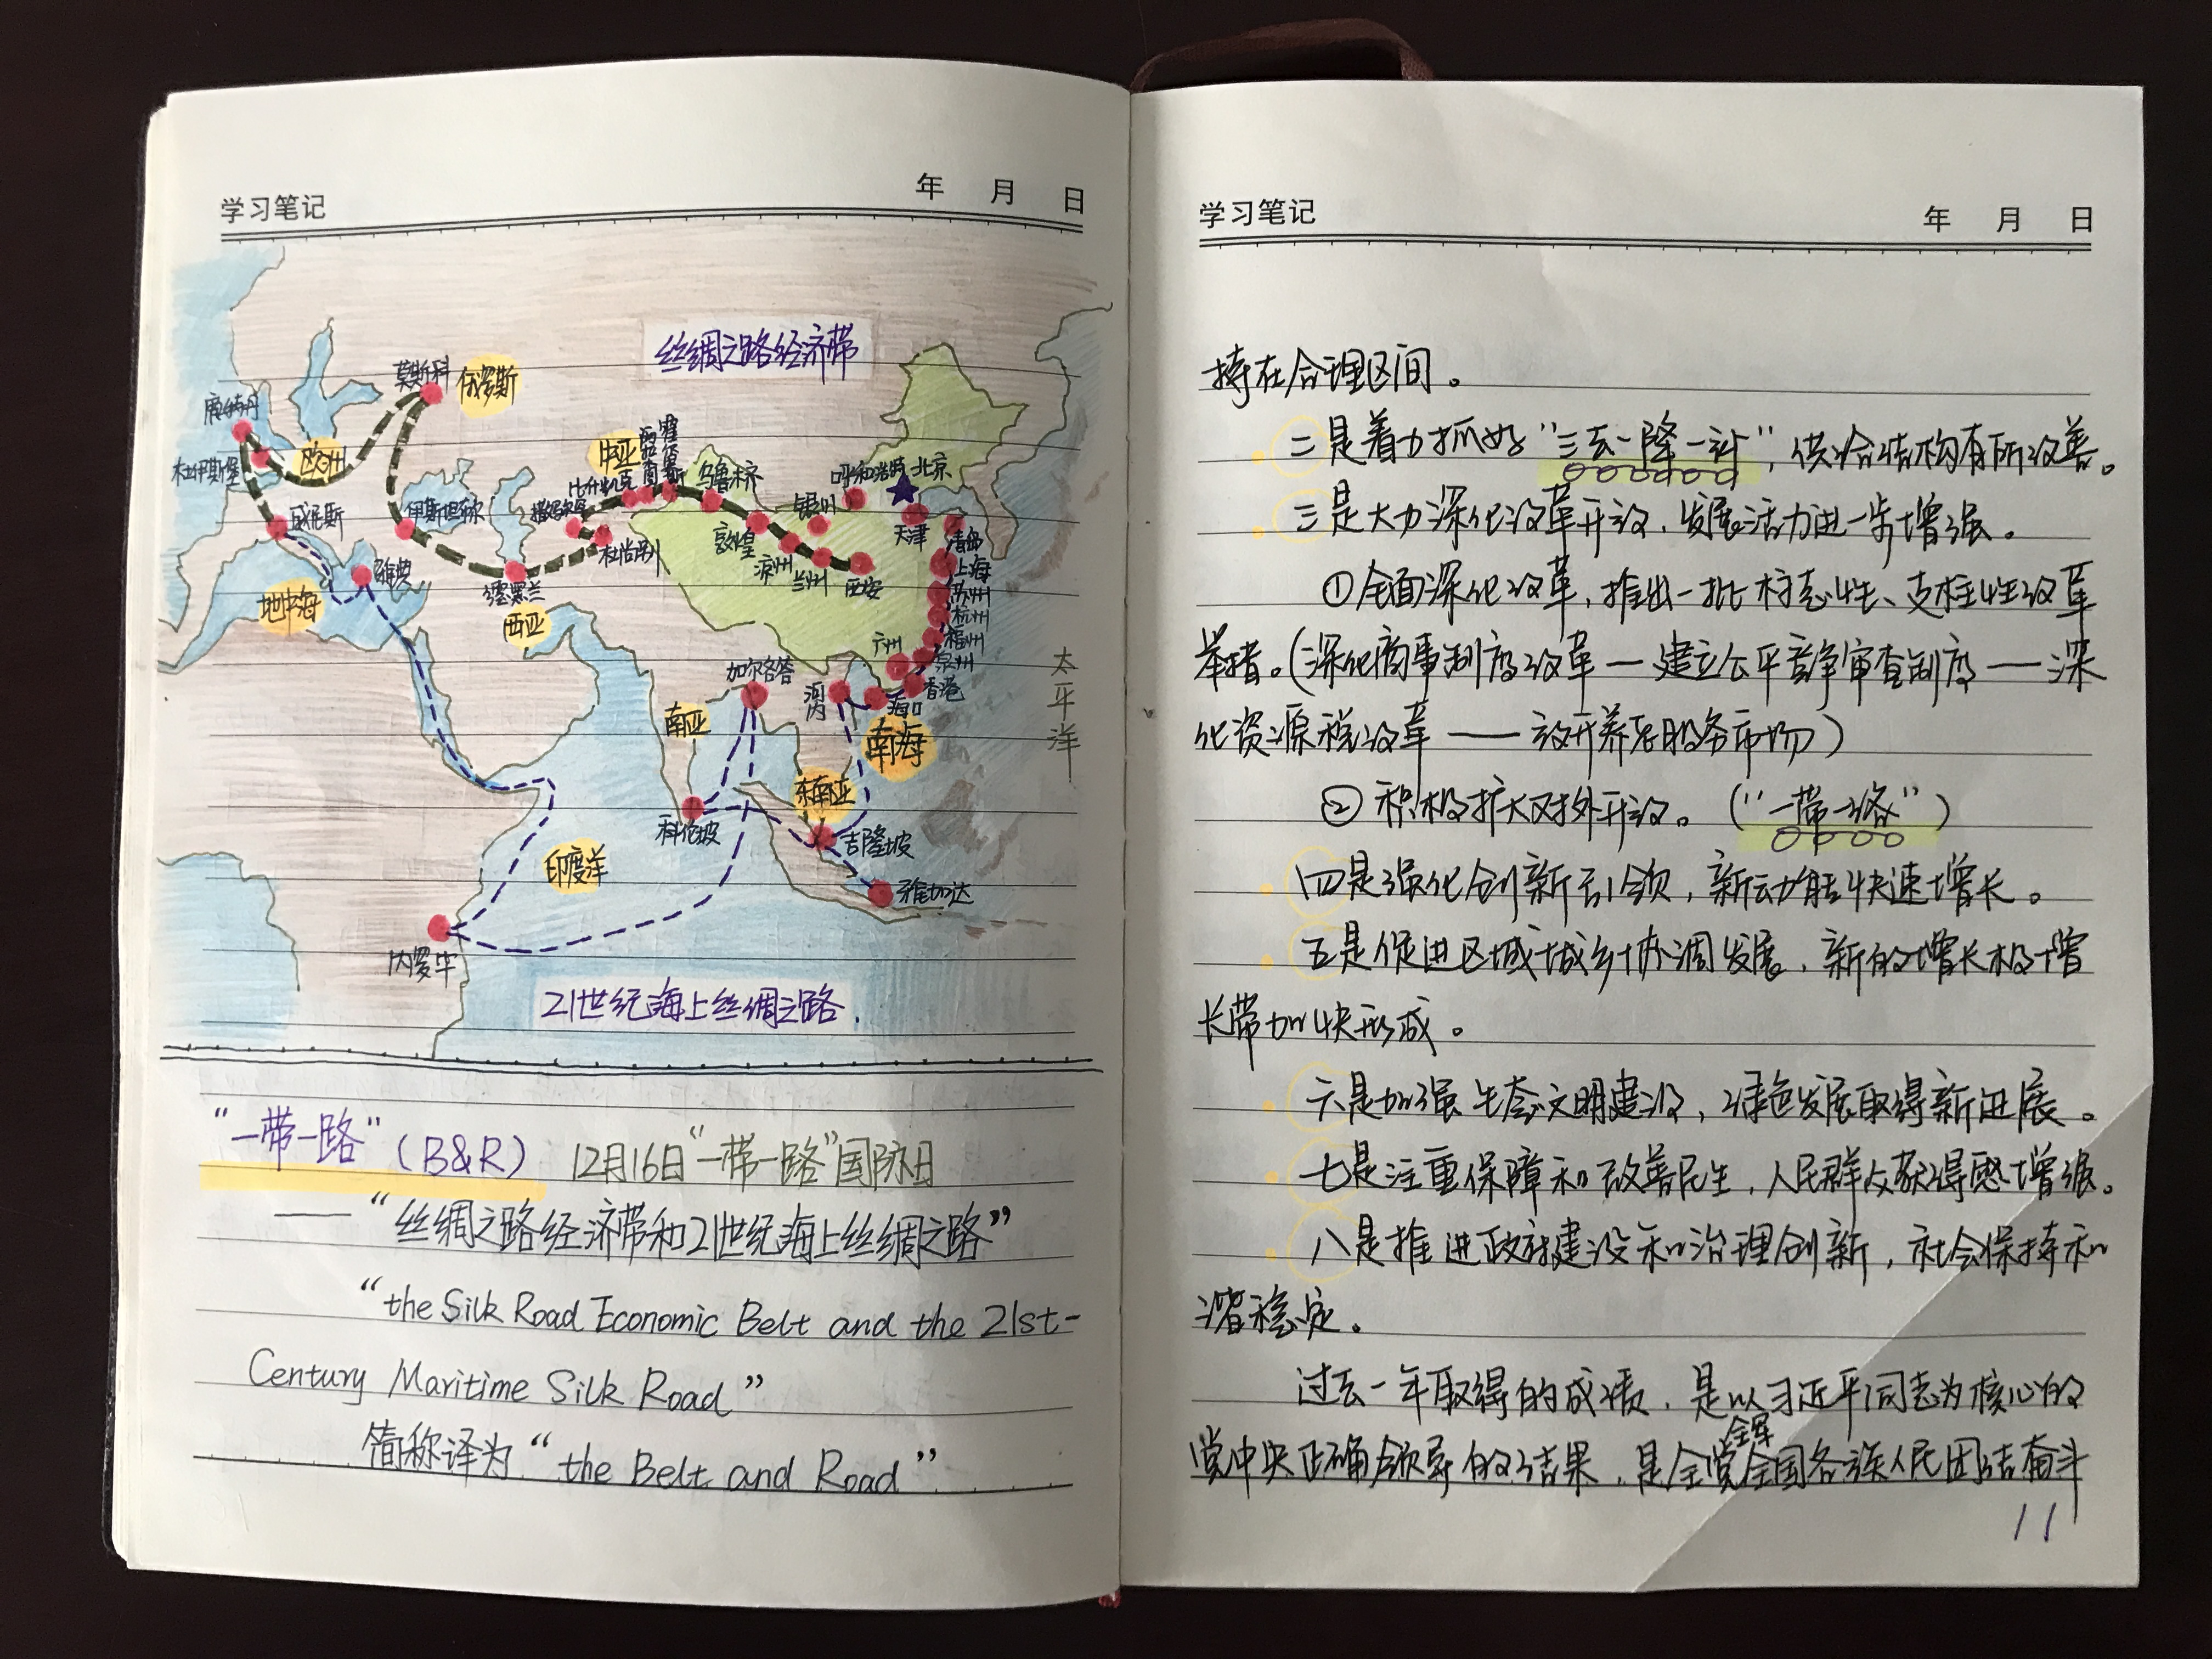 学习笔记 年 月 日
丝绸之路经济带
莫斯科
俄罗斯
鹿特丹
欧州
杜伊斯堡
威尼斯
伊斯坦布尔
雅典
地中海
德黑兰
西亚
撒马尔罕
杜尚别
中亚
比什凯克
霍尔果斯
乌鲁木齐
敦煌
凉州
兰州
西安
银川
呼和浩特
北京
天津
青岛
上海
苏州
杭州
福州
泉州
广州
香港
海口
河内
南海
太平洋
加尔各答
南亚
东南亚
科伦坡
吉隆坡
雅加达
印度洋
内罗毕
21世纪海上丝绸之路.
“一带一路”(B&R) 12月16日“一带一路”国际日
——“丝绸之路经济带和21世纪海上丝绸之路”
“the Silk Road Economic Belt and the 21st-
Century Maritime Silk Road”
简称译为“the Belt and Road”
学习笔记 年 月 日
持在合理区间。
二是着力抓好“三去一降一补”,供给结构有所改善。
三是大力深化改革开放,发展活力进一步增强。
①全面深化改革,推出一批标志性、支柱性改革
举措。(深化商事制度改革—建立公平竞争审查制度——深
化资源税改革——放开养老服务市场)
②积极扩大对外开放。(“一带一路”)
四是强化创新引领,新动能快速增长。
五是促进区域城乡协调发展,新的增长极增
长带加快形成。
六是加强生态文明建设,绿色发展取得新进展。
七是注重保障和改善民生,人民群众获得感增强。
八是推进政府建设和治理创新,社会保持和
谐稳定。
过去一年取得的成绩,是以习近平同志为核心的
党中央正确领导的结果,是全党全军全国各族人民团结奋斗
11